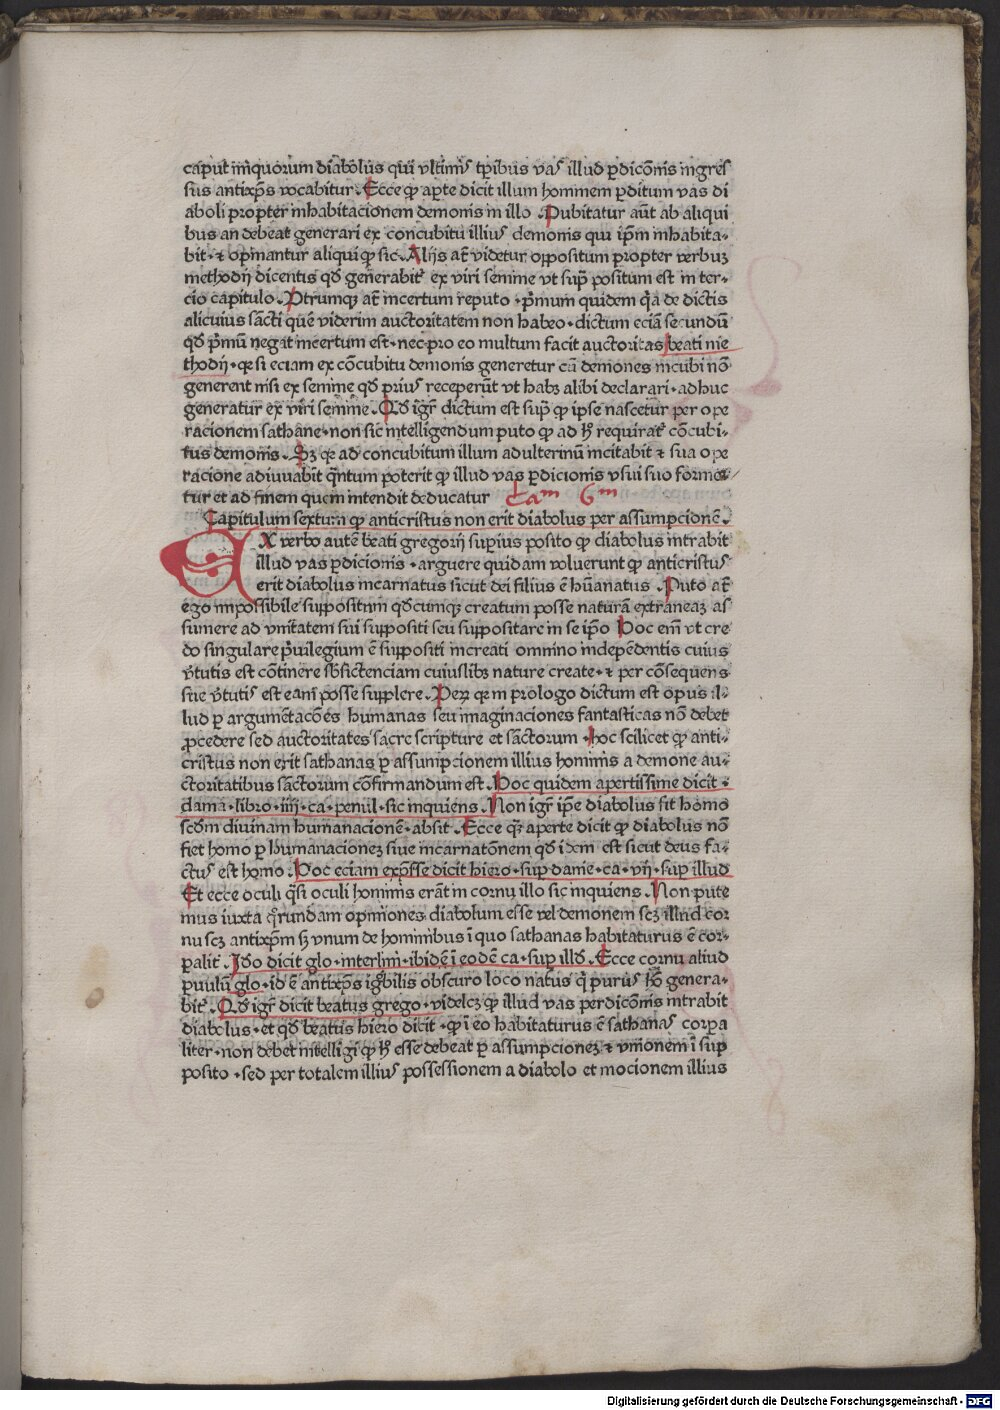 caput iniquorum diabolus qui vltimis tp̄ibus vas illud p̄dic̄onis ingres
sus antixp̄s vocabitur. Ecce qꝫ ap̄te dicit illum hominem p̄ditum vas di
aboli propter inhabitacionem demonis in illo. Dubitatur aūt ab aliqui
bus an debeat generari ex concubitu illius demonis qui ip̄m inhabita-
bit. ⁊ opinantur aliqui qꝫ sic. Alijs at̄ videtur oppositum propter verbuꝫ
methodij dicentis qd̄ generabit̄ ex viri semine vt sup̄ positum est in ter-
cio capitulo. Vtrumqꝫ at̄ incertum reputo. p̄mum quidem q̄a de dictis
alicuius sācti quē viderim auctoritatem non habeo. dictum eciā secundū
qd̄ p̄mū negat incertum est. nec pro eo multum facit auctoritas beati me
thodij. qꝫ si eciam ex cōcubitu demonis generetur cā demones incubi nō
generent nisi ex semine qd̄ prius receperūt vt habꝫ alibi declarari. adhuc
generatur ex viri semine. Qd̄ igr̄ dictum est sup̄ qꝫ ipse nascetur per ope
racionem sathane. non sic intelligendum puto qꝫ ad h̄ requirat̄ cōcubi-
tus demonis. Sꝫ qꝫ ad concubitum illum adulterinū incitabit ⁊ sua ope
racione adiuuabit q̄ntum poterit qꝫ illud vas p̄dicionis vsui suo forme-
tur et ad finem quem intendit deducatur Cam 6m
Capitulum sextum qꝫ anticristus non erit diabolus per assumpcionē.
Ex verbo autē beati gregorij sup̄ius posito qꝫ diabolus intrabit
illud vas p̄dicionis. arguere quidam voluerunt qꝫ anticristus
erit diabolus incarnatus sicut dei filius ē hūanatus. Puto at̄
ego impossibile suppositum qd̄cumqꝫ creatum posse naturā extraneaꝫ as
sumere ad vnitatem sui suppositi seu suppositare in se ip̄o Hoc em̄ vt cre
do singulare p̄uilegium ē suppositi increati omnino indepēdentis cuius
v̄tutis est cōtinere sb̄sistenciam cuiuslibꝫ nature create. ⁊ per cōsequens
sue v̄tutis est eam posse supplere. Verꝫ qꝫ in prologo dictum est opus il-
lud p̄ argumētacōes humanas seu imaginaciones fantasticas nō debet
procedere sed auctoritates sacre scripture et sāctorum. hoc scilicet qꝫ anti-
cristus non erit sathanas p̄ assumpcionem illius hominis a demone au-
ctoritatibus sāctorum cōfirmandum est. Hoc quidem apertissime dicit.
dama. libro. iiij. ca. penul. sic inquiens. Non igr̄ ip̄e diabolus fit homo
scd̄m diuinam humanacionē. absit. Ecce qꝫ aperte dicit qꝫ diabolus nō
fiet homo p̄ humanacioneꝫ siue incarnatōnem qd̄ idem est sicut deus fa-
ctus est homo. Hoc eciam exp̄sse dicit hiero. sup danie. ca. vij. sup illud
Et ecce oculi q̄si oculi hominis erāt in cornu illo sic inquiens. Non pute
mus iuxta q̄rundam opiniones diabolum esse vel demonem scꝫ illud cor
nu scꝫ antixp̄m sꝫ vnum de hominibus ī quo sathanas habitaturus ē cor-
palit̄. Ido dicit glo. interlini. ibidē ī eodē ca. sup illd̄. Ecce cornu aliud
p̄uulū glo. id ē antixp̄s ignobilis obscuro loco natus q̄ purus hō genera-
bit̄. Qd̄ igr̄ dicit beatus grego. videlcꝫ qꝫ illud vas perdic̄onis intrabit
diabolus. et qd̄ beatus hiero dicit. qꝫ ī eo habitaturus ē sathanas corpa
liter. non debet intelligi qꝫ h̄ esse debeat p̄ assumpcioneꝫ ⁊ vnionem ī sup
posito. sed per totalem illius possessionem a diabolo et mocionem illius
Digitalisierung gefördert durch die Deutsche Forschungsgemeinschaft - DFG